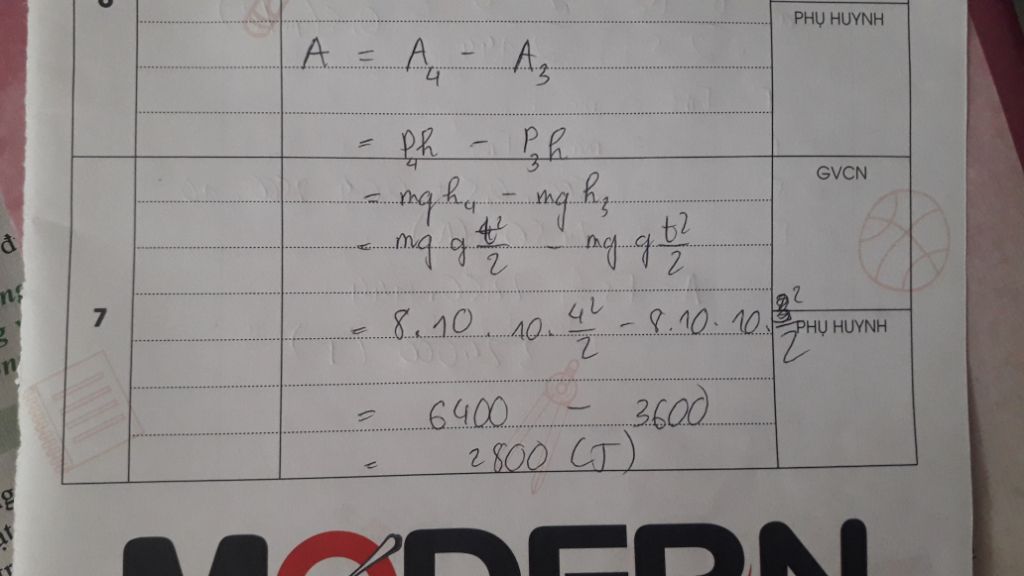 PHỤ HUYNH
A = A₄ - A₃
= P₄h - P₃h
GVCN
= mgh₄ - mgh₃
= mg g t²/2 - mg g t²/2
7
= 8.10.10.4²/2 - 8.10.10.3²/2
PHỤ HUYNH
= 6400 - 3600
= 2800 (J)
MODERN